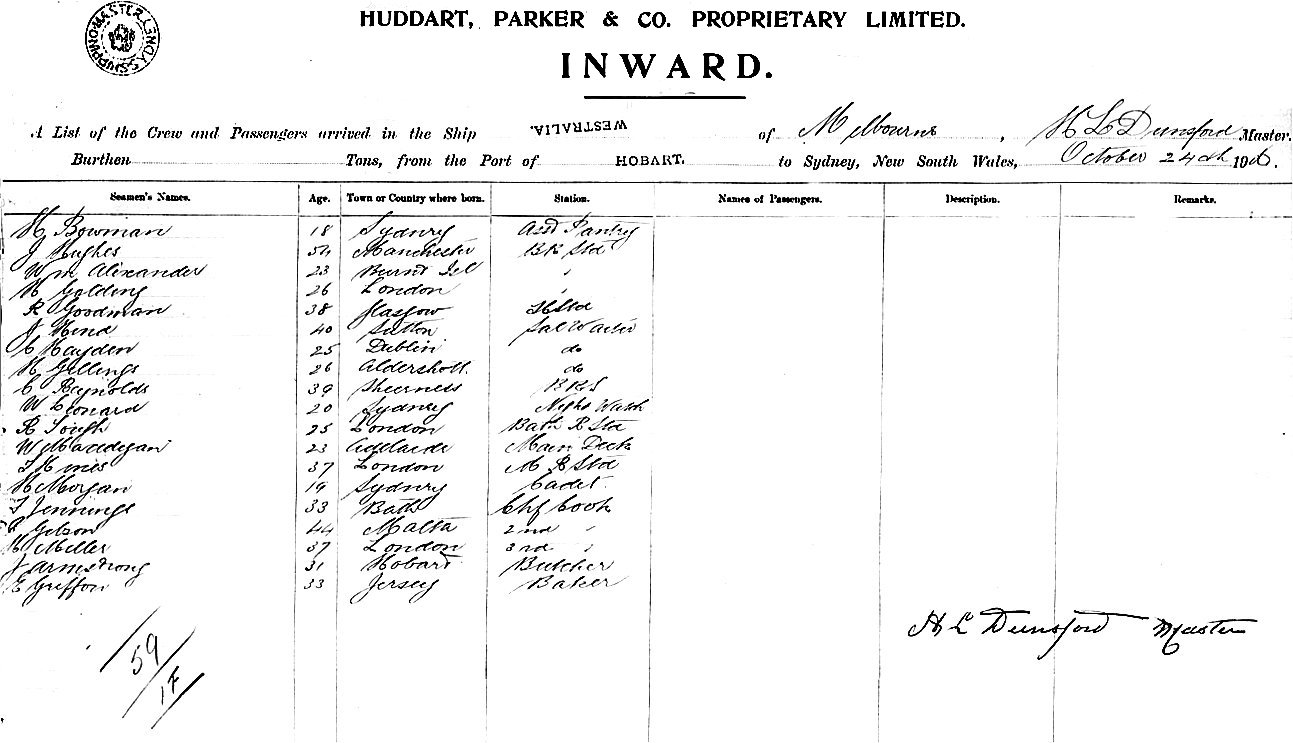 SHIPPING MASTER SYDNEY
HUDDART, PARKER & CO. PROPRIETARY LIMITED.
INWARD.
A List of the Crew and Passengers arrived in the Ship WESTRALIA. of Melbourne, H L Dunsford Master.
Burthen Tons, from the Port of HOBART. to Sydney, New South Wales, October 24th 190
Seamen's Names. Age. Town or Country where born. Station. Names of Passengers. Description. Remarks.
H Bowman 18 Sydney Asst Pantry
J Hughes 54 Manchester B R Std
Wm Alexander 23 Burnt Isl "
H Golding 26 London "
R Goodman 38 Glasgow Std
J Hind 40 Sutton Sal Waiter
C Hayden 25 Dublin do
H Gillings 26 Aldershott do
C Reynolds 39 Sheerness B R S
W Leonard 20 Sydney Night Watch
R Tough 25 London Bath R Std
W Maddigan 23 Adelaide Main Deck
T Hines 37 London M R Std
H Morgan 19 Sydney Cadet
T Jennings 33 Bath Chf Cook
Gibson 44 Malta 2nd "
H Miller 37 London 3rd "
J Armstrong 31 Hobart Butcher
E Griffon 33 Jersey Baker
H L Dunsford Master
59/1F